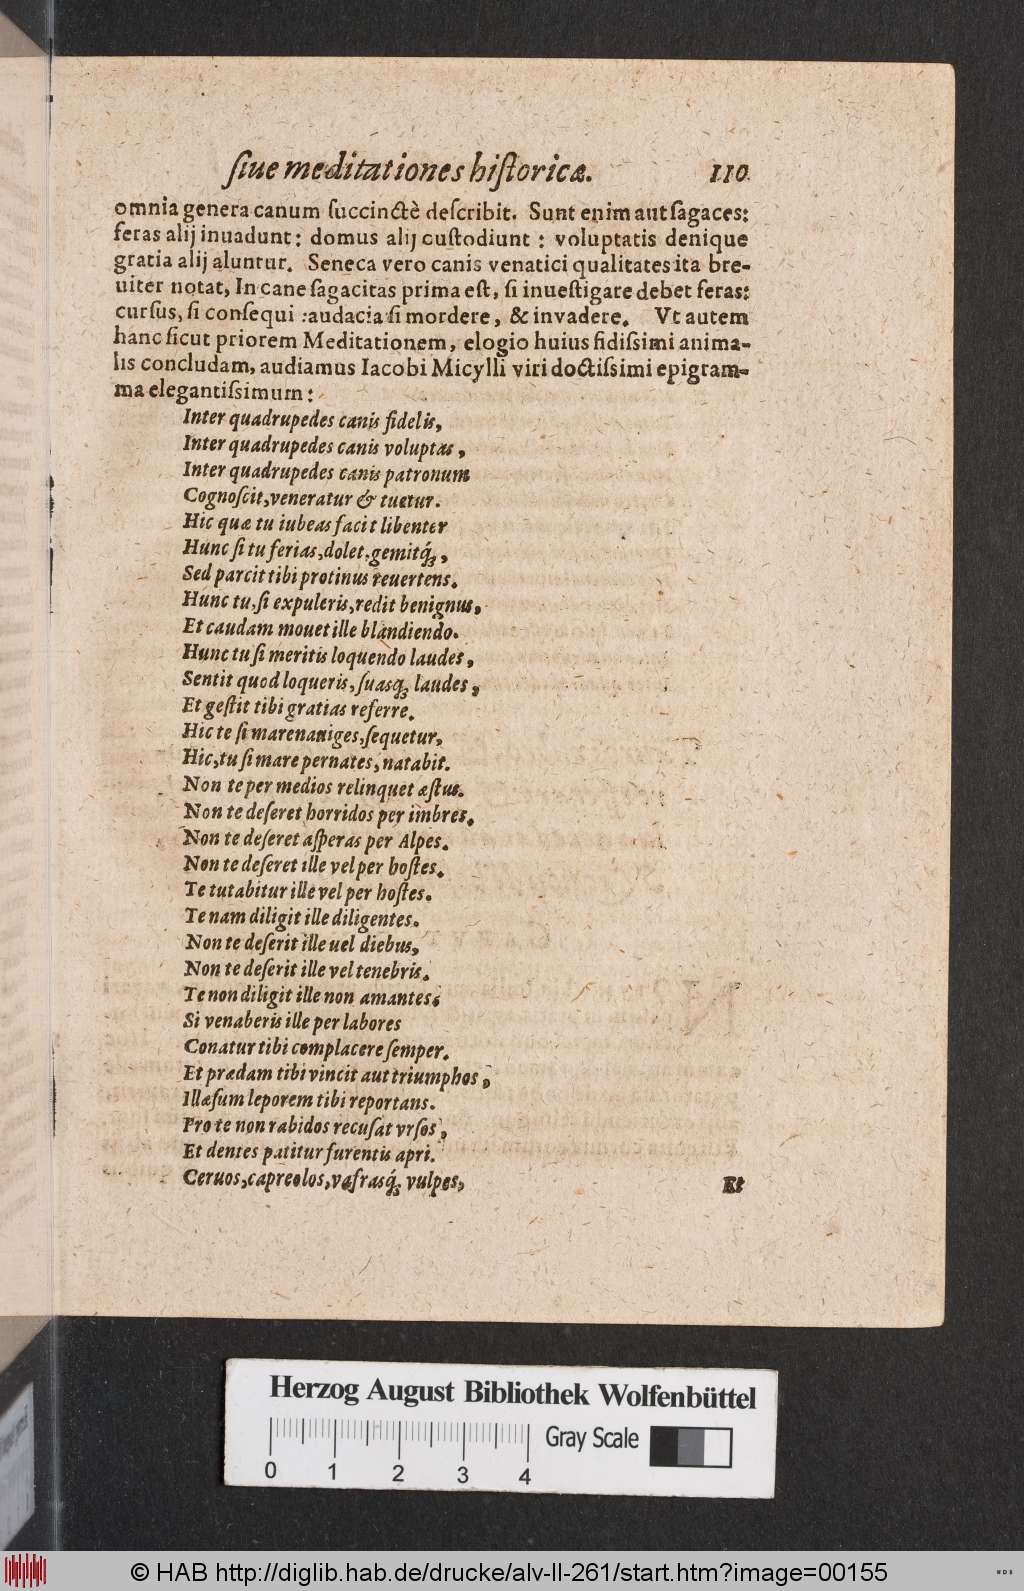 ſiue meditationes hiſtoricæ. 110
omnia genera canum ſuccinctè deſcribit. Sunt enim aut ſagaces:
feras alij inuadunt: domus alij cuſtodiunt : voluptatis denique
gratia alij aluntur. Seneca vero canis venatici qualitates ita bre-
uiter notat, In cane ſagacitas prima eſt, ſi inueſtigare debet feras:
curſus, ſi conſequi : audacia ſi mordere, & invadere. Vt autem
hanc ſicut priorem Meditationem, elogio huius fidiſsimi anima-
lis concludam, audiamus Iacobi Micylli viri doctiſsimi epigram-
ma elegantiſsimum:
Inter quadrupedes canis fidelis,
Inter quadrupedes canis voluptas,
Inter quadrupedes canis patronum
Cognoſcit, veneratur & tuetur.
Hic quæ tu iubeas facit libenter
Hunc ſi tu ferias, dolet, gemitq́;,
Sed parcit tibi protinus reuertens.
Hunc tu, ſi expuleris, redit benignus,
Et caudam mouet ille blandiendo.
Hunc tu ſi meritis loquendo laudes,
Sentit quod loqueris, ſuasq; laudes,
Et geſtit tibi gratias referre.
Hic te ſi mare nauiges, ſequetur,
Hic, tu ſi mare pernates, natabit.
Non te per medios relinquet æſtus.
Non te deſeret horridos per imbres.
Non te deſeret aſperas per Alpes.
Non te deſeret ille vel per hoſtes.
Te tutabitur ille vel per hoſtes.
Te nam diligit ille diligentes.
Non te deſerit ille uel diebus,
Non te deſerit ille vel tenebris.
Te non diligit ille non amantes.
Si venaberis ille per labores
Conatur tibi complacere ſemper.
Et prædam tibi vincit aut triumphos,
Illæſum leporem tibi reportans.
Pro te non rabidos recuſat vrſos,
Et dentes patitur furentis apri.
Ceruos, capreolos, vafrasq́; vulpes,
Et
Herzog August Bibliothek Wolfenbüttel
Gray Scale
0 1 2 3 4
© HAB http://diglib.hab.de/drucke/alv-ll-261/start.htm?image=00155